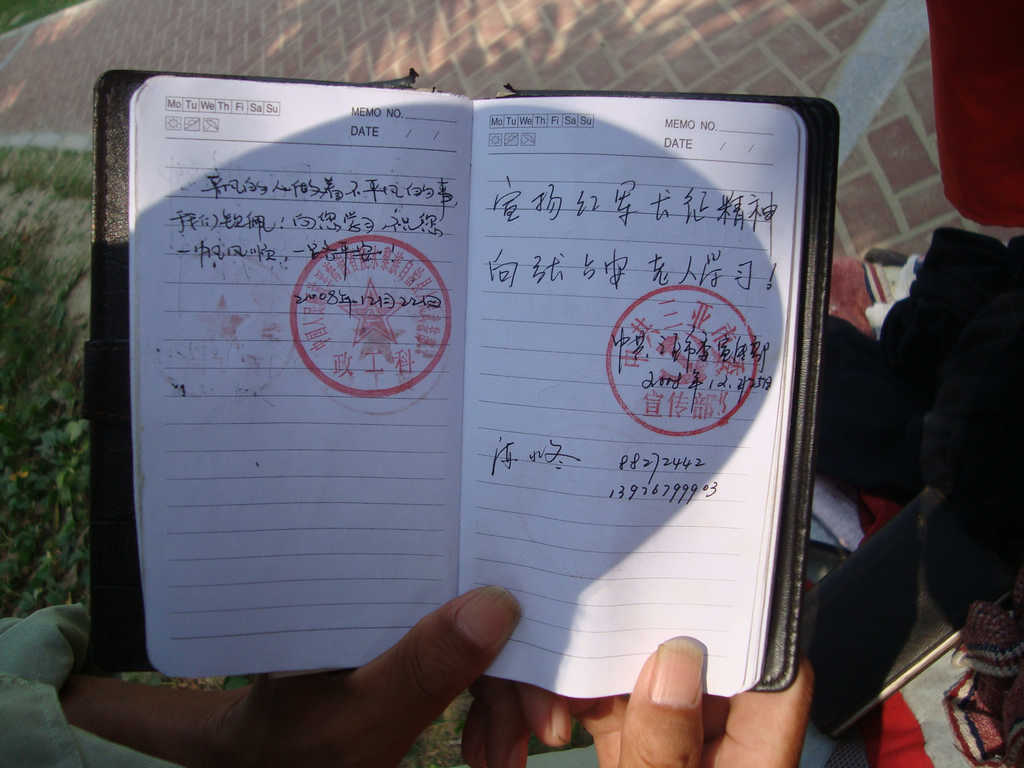 Mo Tu We Th Fi Sa Su
MEMO NO.
DATE / /
平凡的人做着不平凡的事,
我们钦佩!向您学习、祝您
一帆风顺,一路平安!
2008年12月22日
政工科
Mo Tu We Th Fi Sa Su
MEMO NO.
DATE / /
宣扬红军长征精神
向张占审老人学习!
中共三亚市委宣传部
中共三亚市委
宣传部
88272442
13976799903